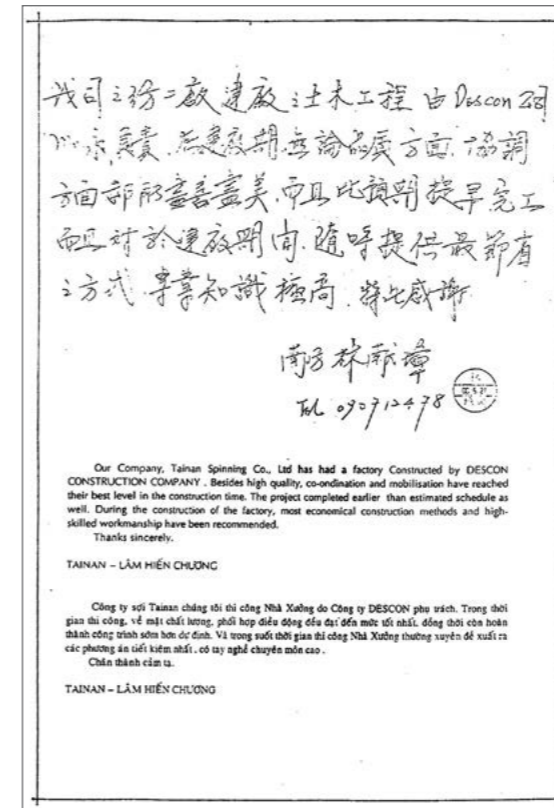 我司之紡二廠建廠之土木工程由Descon公司
負責.在建廠期無論品質方面.協調
方面都能盡善盡美.而且比預期提早完工
而且對於建廠期間.隨時提供最節省
之方式.專業知識極高.特此感謝
南方 林献章
TEL 090712478
Our Company, Tainan Spinning Co., Ltd has had a factory Constructed by DESCON
CONSTRUCTION COMPANY . Besides high quality, co-ondination and mobilisation have reached
their best level in the construction time. The project completed earlier than estimated schedule as
well. During the construction of the factory, most economical construction methods and high-
skilled workmanship have been recommended.
Thanks sincerely.
TAINAN – LÂM HIẾN CHƯƠNG
Công ty sợi Tainan chúng tôi thi công Nhà Xưởng do Công ty DESCON phụ trách. Trong thời
gian thi công, về mặt chất lượng, phối hợp điều động đều đạt đến mức tốt nhất, đồng thời còn hoàn
thành công trình sớm hơn dự định. Và trong suốt thời gian thi công Nhà Xưởng thường xuyên đề xuất ra
các phương án tiết kiệm nhất , có tay nghề chuyên môn cao .
Chân thành cảm tạ.
TAINAN – LÂM HIẾN CHƯƠNG